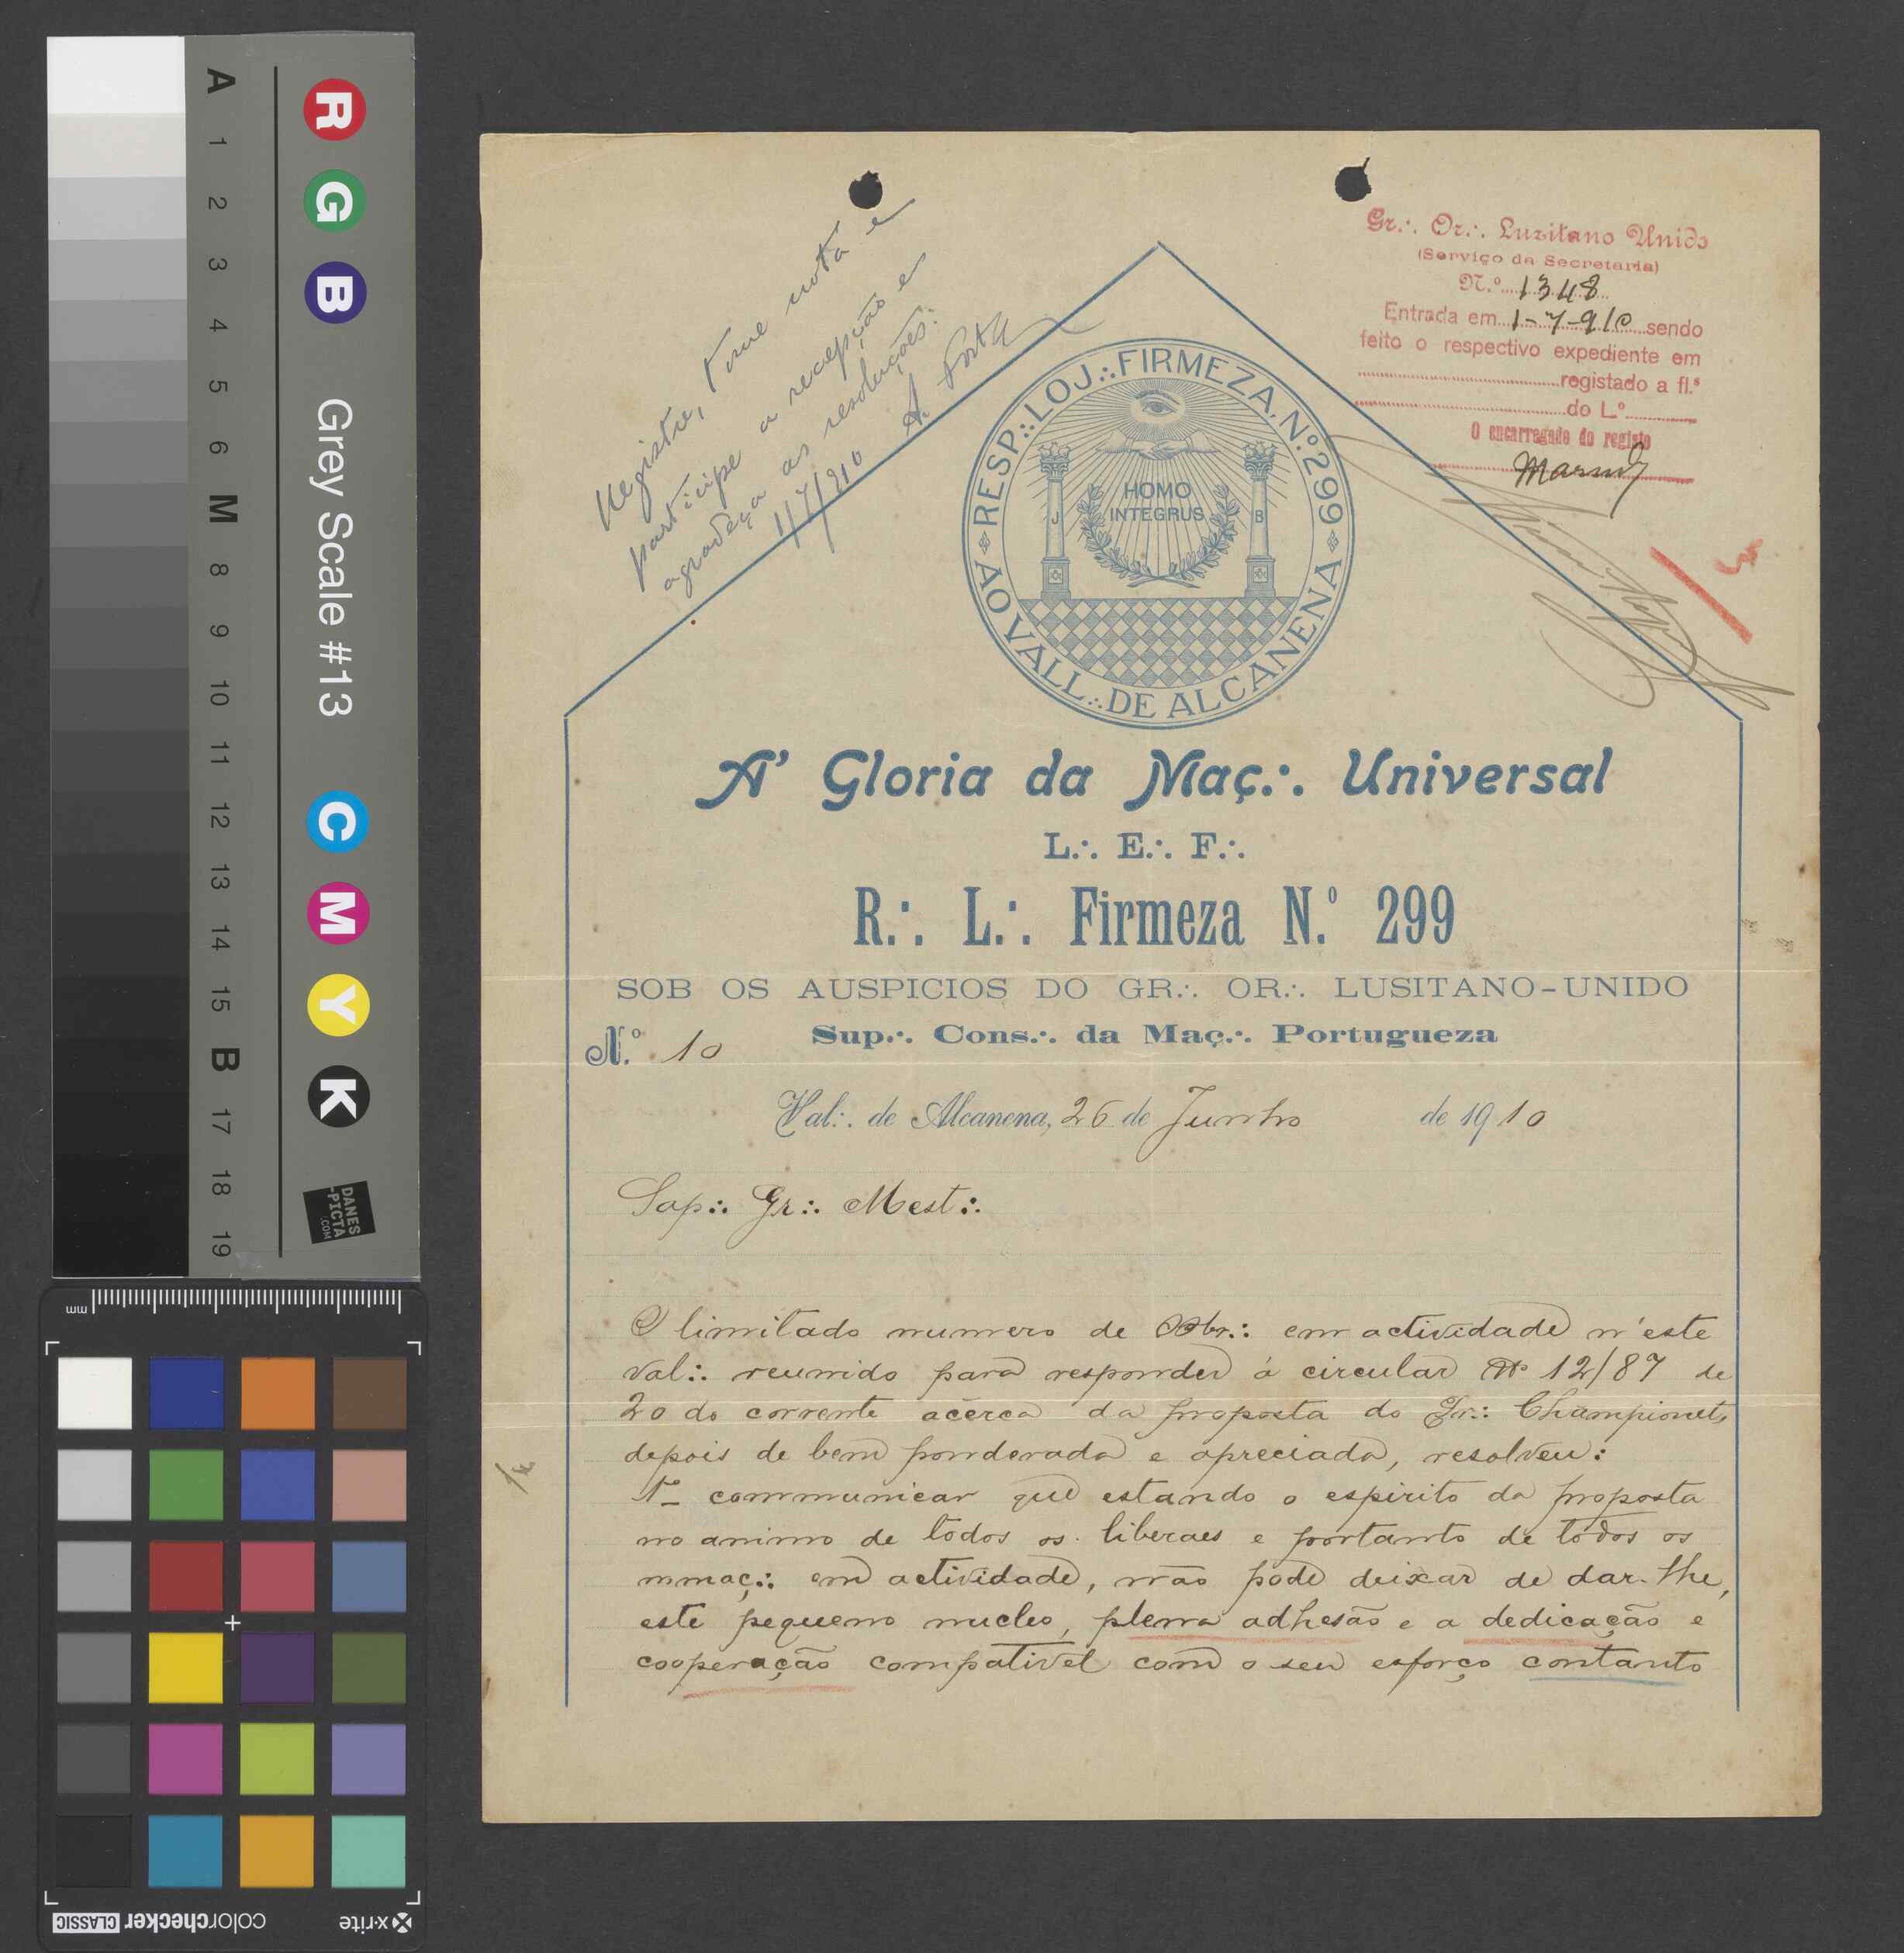 A 1 2 3 4 5 6 M 8 9 10 11 12 13 14 15 B 17 18 19
R G B Grey Scale #13 C M Y K
DANES
-PICTA
.COM
mm
x-rite
colorchecker CLASSIC
Registre, tome nota e
participe a recepção e
agradeça as resoluções.
1/7/910
Gr∴ Or∴ Luzitano Unido
(Serviço da Secretaria)
N.º 1348
Entrada em 1-7-910 sendo
feito o respectivo expediente em
registado a fl.ˢ
do L.º
O encarregado do registo
RESP∴ LOJ∴ FIRMEZA, N.º 299
AO VALL∴ DE ALCANENA
HOMO
INTEGRUS
J B
A' Gloria da Maç∴ Universal
L∴ E∴ F∴
R∴ L∴ Firmeza N.º 299
SOB OS AUSPICIOS DO GR∴ OR∴ LUSITANO-UNIDO
Sup∴ Cons∴ da Maç∴ Portugueza
N.º 10
Val∴ de Alcanena, 26 de Junho de 1910
Sap∴ Gr∴ Mest∴
O limitado numero de Obr∴ em actividade n'este
val∴ reunido para responder á circular Nº 12/87 de
20 do corrente ácerca da proposta do Ir∴ Championet,
depois de bem ponderada e apreciada, resolveu:
1º - communicar que estando o espirito da proposta
no animo de todos os liberaes e portanto de todos os
mmaç∴ em actividade, não pode deixar de dar-lhe,
este pequeno nucleo, plena adhesão e a dedicação e
cooperação compativel com o seu esforço contanto